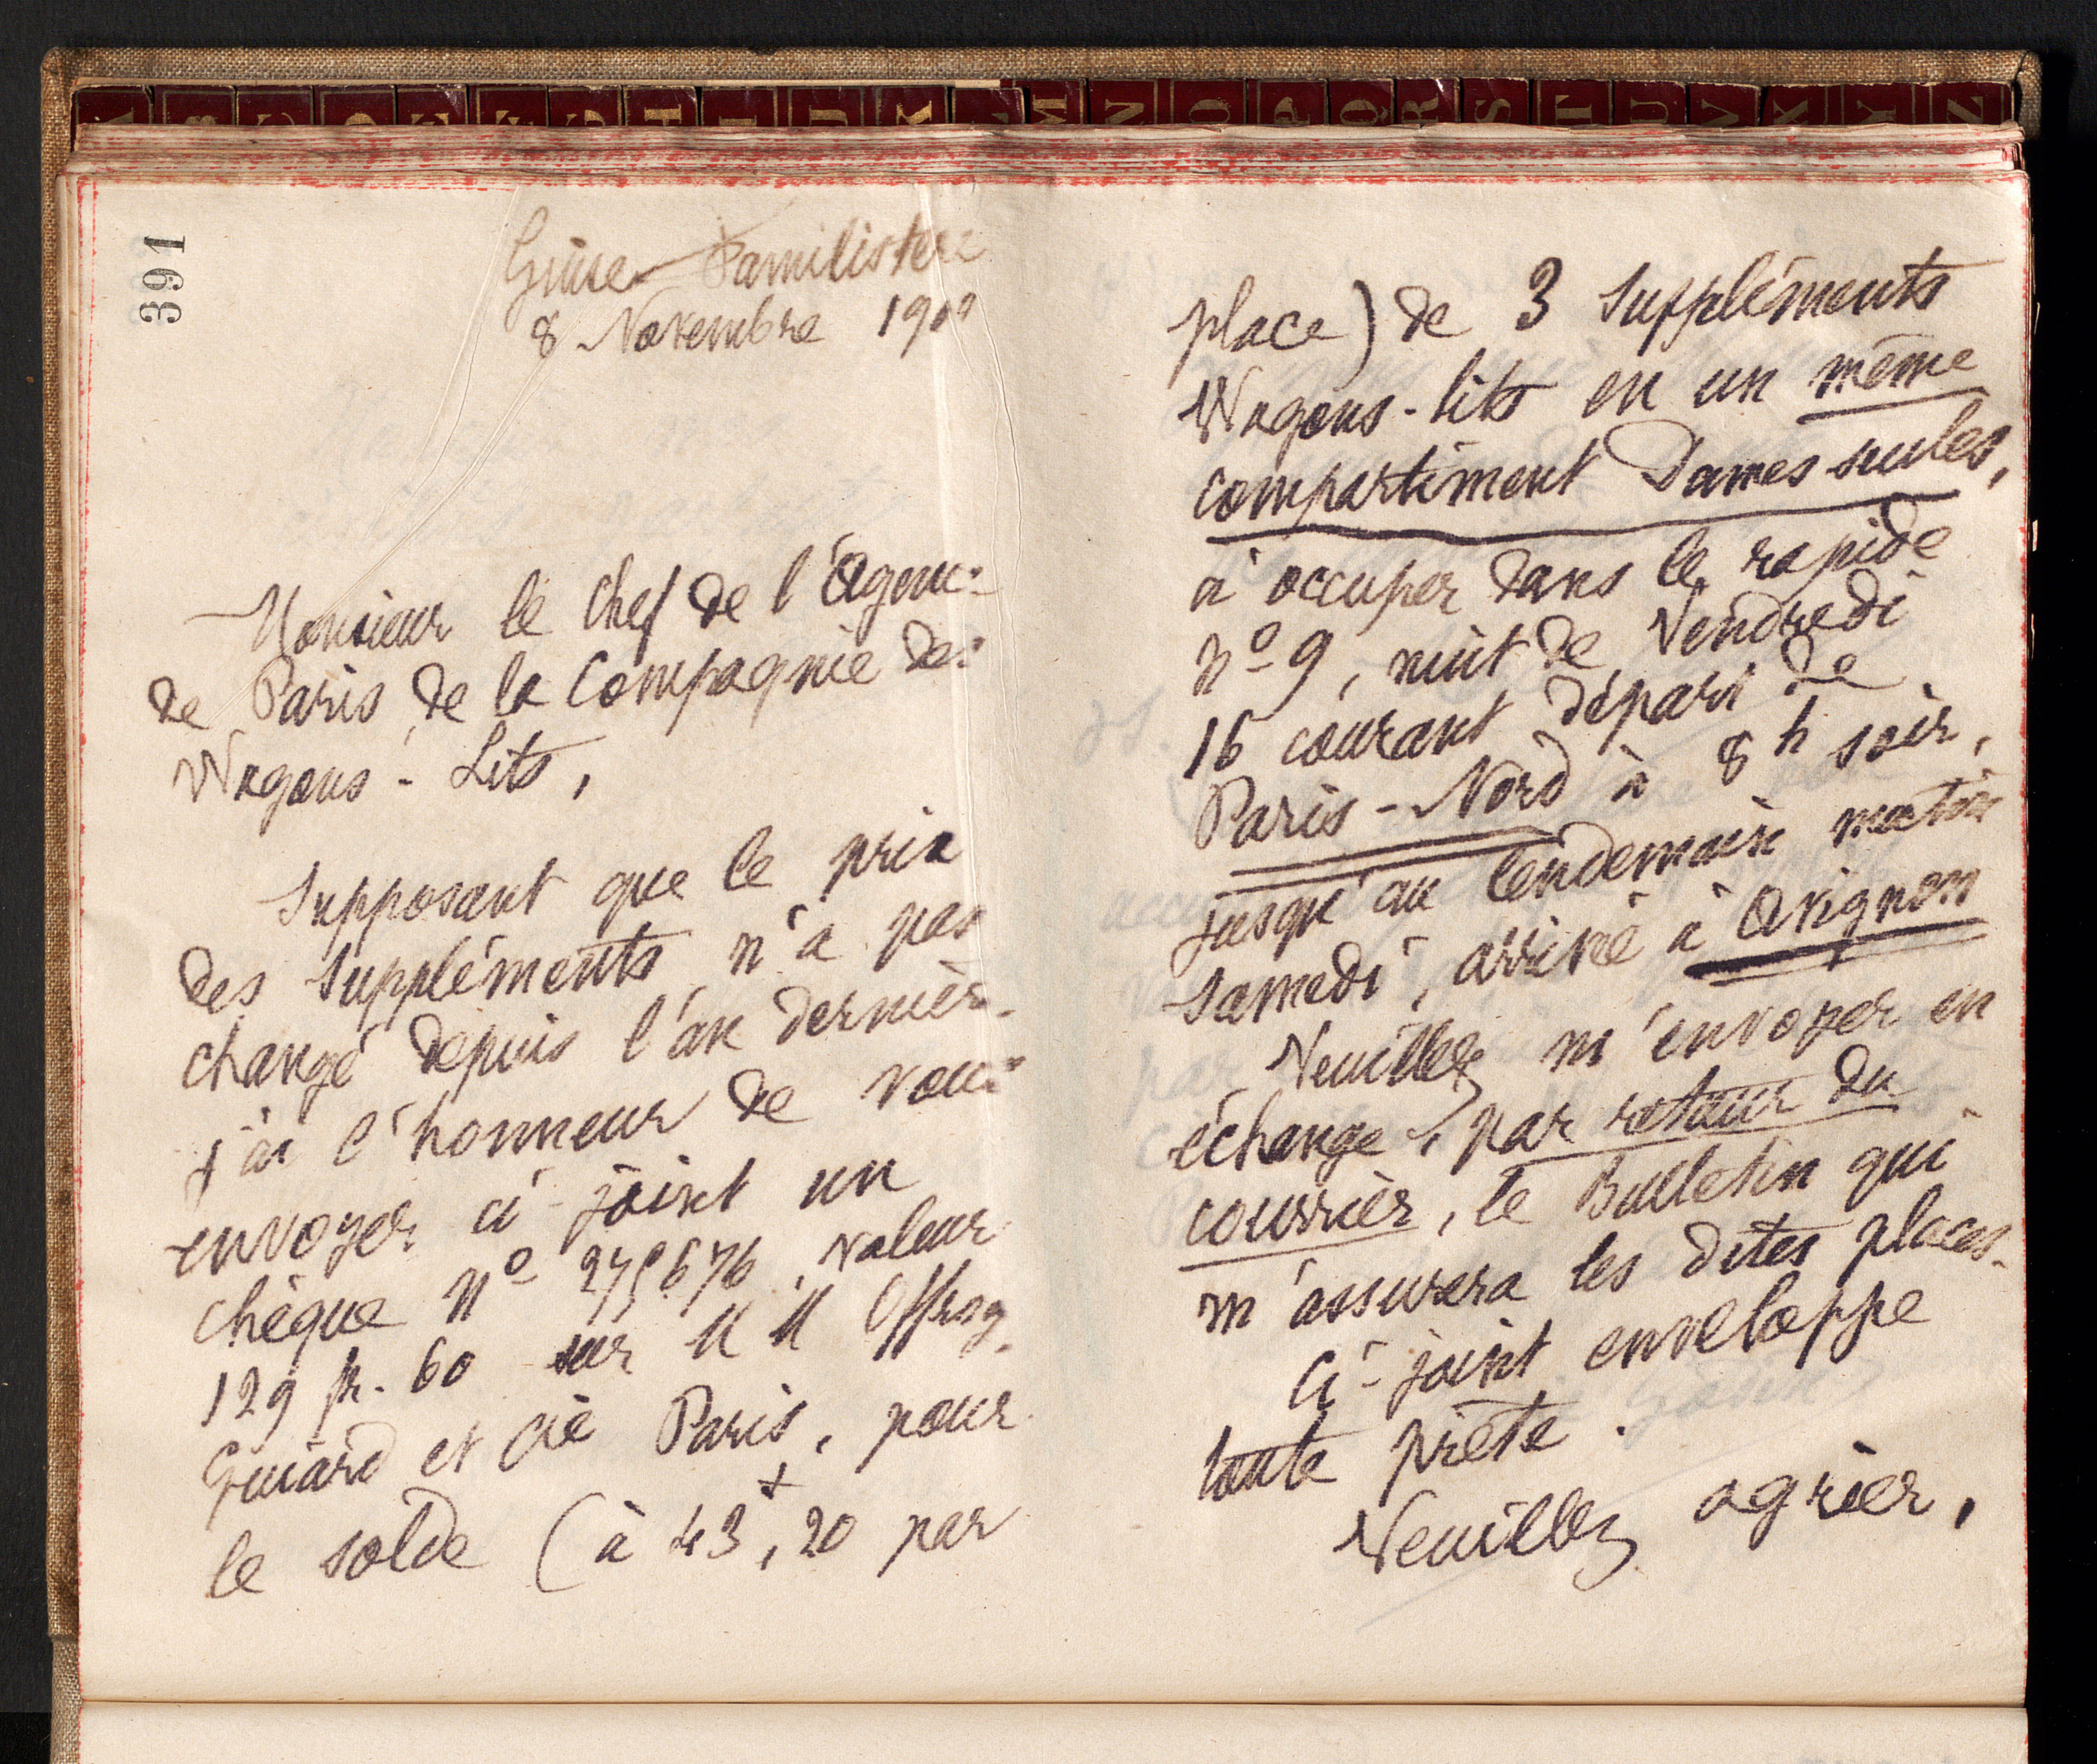 391
Guise Familistère
8 Novembre 1900
Monsieur le Chef de l'Agence
de Paris de la Compagnie des
Wagons-Lits,
Supposant que le prix
des suppléments n'a pas
changé depuis l'an dernier
j'ai l'honneur de vous
envoyer ci-joint un
chèque No 275676, valeur
129 fr. 60 sur MM Offroy
Guiard et Cie Paris, pour
le solde (à 43f, 20 par
place) de 3 suppléments
Wagons-lits en un même
compartiment Dames seules,
à occuper dans le rapide
no 9, nuit de Vendredi
16 courant départ de
Paris-Nord à 8h soir,
jusqu'au lendemain matin
samedi, arrivée à Avignon
Veuillez m'envoyer en
échange, par retour du
courrier, le Bulletin qui
m'assurera les dites places.
Ci-joint enveloppe
toute prête.
Veuillez agréer,
A B C D E F G H I J K L M N O P Q R S T U V X Y Z